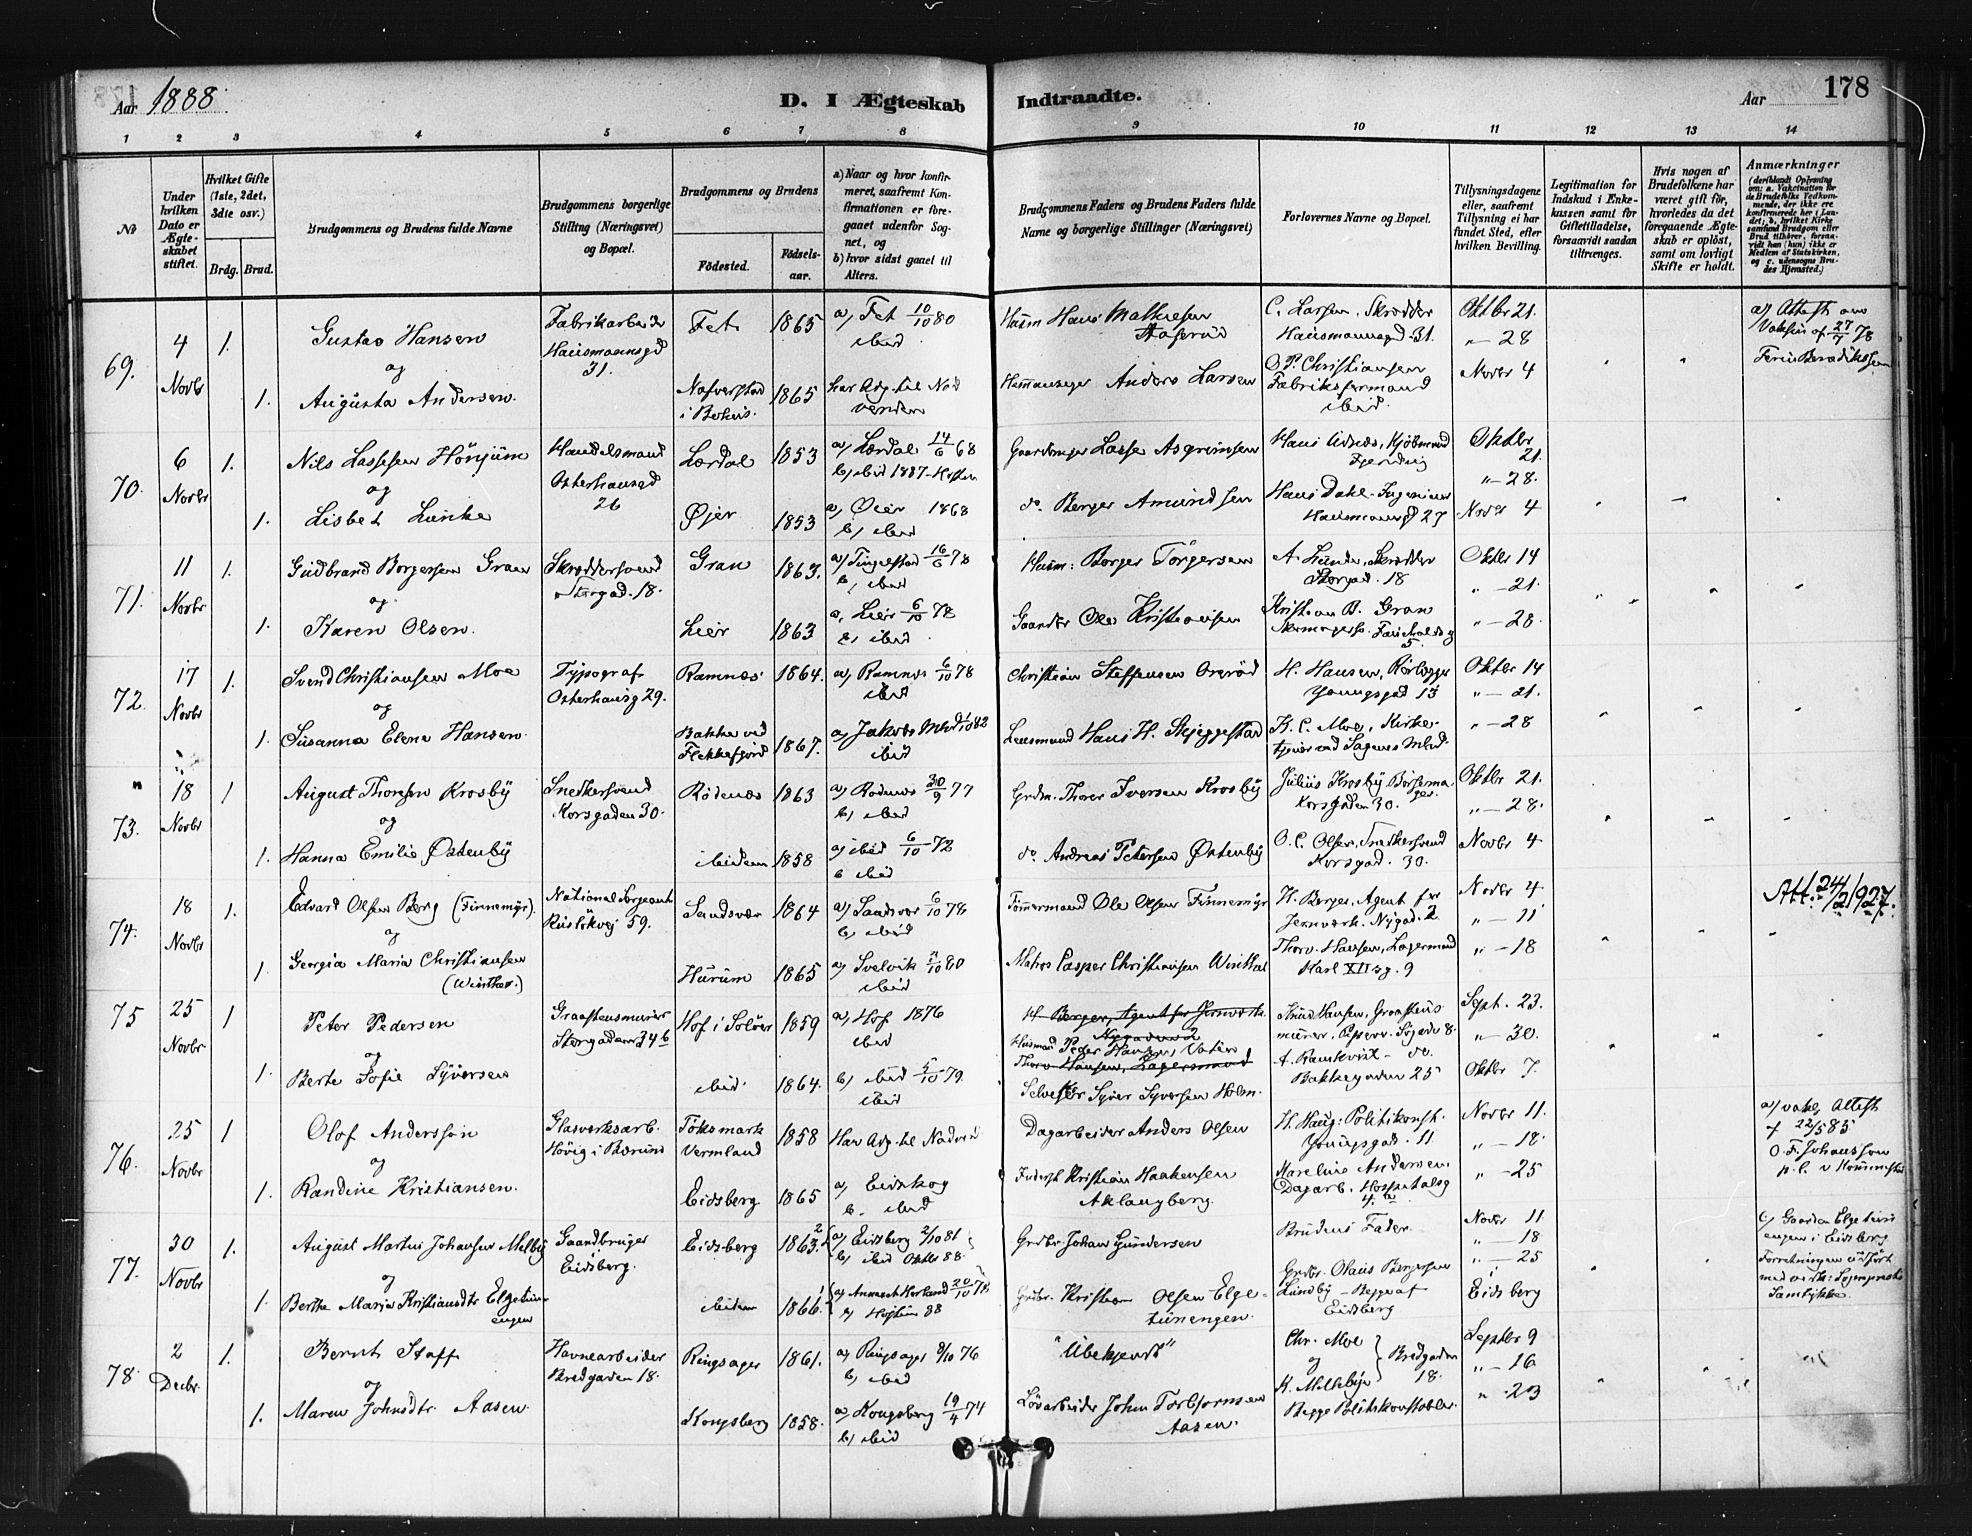 Aar 1888. D. I Ægteskab Indtraadte. Aar 178
1 2 3 4 5 6 7 8 9 10 11 12 13 14
No
Under hvilken Dato er Ægteskabet stiftet.
Hvilket Gifte (1ste, 2det, 3die osv.)
Brdg. Brud.
Brudgommens og Brudens fulde Navne
Brudgommens borgerlige Stilling (Næringsvei) og Bopæl.
Brudgommens og Brudens
Fødested. Fødselsaar.
a) Naar og hvor konfirmeret, saafremt Konfirmationen er foregaaet udenfor Sognet, og
b) hvor sidst gaaet til Alters.
Brudgommens Faders og Brudens Faders fulde Navne og borgerlige Stillinger (Næringsvei)
Forlovernes Navne og Bopæl.
Tillysningsdagene eller, saafremt Tillysning ei har fundet Sted, efter hvilken Bevilling.
Legitimation for Indskud i Enkekassen samt for Giftetilladelse, forsaavidt saadan tiltrænges.
Hvis nogen af Brudefolkene har været gift før, hvorledes da det foregaaende Ægteskab er opløst, samt om lovligt Skifte er holdt.
Anmærkninger
(deriblandt Oplysning om: a. Vakcination for de Brudefolks Vedkommende, der ikke ere konfirmerede her i Landet; b. hvilket Kirkesamfund Brudgom eller Brud tilhører, forsaavidt han (hun) ikke er Medlem af Statskirken, og c. udensogns Brudes Hjemsted.)
69. 4 Novbr 1. Gustav Hansen Fabrikarbeider Hausmannsgd 31. Fet 1865 a) Fet 10/10 80 ibid
Husm Hans Mathiesen C. Larsen, Skrædder Hausmannsgd. 31. Oktbr 21. " - 28
a) Attest om Vaksin af 27/7 78
og
1. Augusta Andersen. i Bohus. 1865 har Adg. til Nadverden
Hemmanseger Anders Larsen O. P. Christiansen Fabriksformand ibid. Novbr 4
70. 6 Novbr 1. Nils Lassesen Hönjum Handelsmand Osterhausgd 26 Lærdal 1853 a) Lærdal 14/6 68 b) ibid 1887 - Høsten
Gaardmger Lasse Asgrimsen Oktbr 21. " - 28.
og
1. Lisbet Lunke Øjer 1853 a) Øier 1868 b) ibid
do Berger Amundsen Hans Dahl - Ingeniør Hausmannsgd 27 Novbr 4
71. 11 Novbr 1. Gudbrand Borgersen Gran Skræddersvend Storgad. 18. Gran 1863. a) Tingelstad 16/6 78 b) ibid
Husm: Borger Torgersen A. Lunde, Skrædder Storgad. 18 Oktbr 14 " - 21.
og
1. Karen Olsen. Lier 1863 a) Lier 6/10 78 b) ibid
Gaardbr Ole Kristiansen Kristian B. Gran 5. " - 28.
72. 17 Novbr 1. Svend Christiansen Moe Typograf Osterhausg 29. Ramnæs 1864. a) Ramnæs 6/10 78 ibid
Christian Steffensen H. Hansen, Rörlægger Youngsgad 13 Oktbr 14 " - 21.
og
1. Susanna Elena Hansen. Bakke ved Flekkefjord 1867. a) Jakobs Mhd 1/10 82 ibid
Lensmand Hans H. Skjeggestad K. C. Moe, Kirketjener ved Sagenes Mhd. " - 28
73. 18 Novbr 1 August Thoresen Krosby Snedkersvend Korsgaden 30. Rödenæs 1863 a) Rodenæs 30/9 77 b) ibid
Grdm. Thorer Iversen Krosby Julius Krosby Börsemager. Korsgaden 30. Oktbr 21. " - 28.
og
1. Hanna Emilie Østenby ibidem 1858 a) ibid 6/10 72 b ibid
do Andreas Petersen Østenby O. C. Olsen, Snedkersvend Korsgad. 30. Novbr 4
74. 18 Novbr 1. Edvard Olsen Berg (Finnemyr). National Sergeant Ruslökvej 59. Sandsvær 1864 a) Sandsvær 6/10 78 b) ibid
Tömmermand Ole Olsen Finnemyr H. Berger, Agent for Jernværk. Nygad. 2 Novbr 4 " - 11
Att. 24/2 1927.
og
1 Georgia Maria Christiansen (Winther.) Hurum 1865 a) Svelvik 80 ibid
Matros Casper Christiansen Winther Thorv. Hansen, Lagermand Karl XIIsg. 9 " - 18
75 25 Novbr. 1 Peter Pedersen Graastensmurer Storgaden 34 b Hof i Solör 1859 a) Hof 1876 ibid
H. Berger, Agent for Jernværk. Nygaden 2
Husmand Peder Hansen
Thorv. Hansen, Lagermand
Knud Hansen, Graastensmurer, 8. Sept. 23. " - 30.
og
1. Berte Sofie Syversen ibid. 1864. b) ibid 5/10 79. ibid
Selveier Syver Syversen Holm. A. Ranskvist - do. Bakkegaden 25 Oktbr 7.
76. 25 Novbr 1 Olof Andersson Glasværksarb. Hövig i Bærum Töksmark Vermland 1858 Har Adg. til Nadverd
Dagarbeider Anders Olsen H. Haug: Politikonst. Youngsgad. 11 Novbr 11. " - 18.
a) vaks. Attest f 22/5 85 O. F. Johansson
og
1. Randine Kristiansen. Eidsberg 1865 a) Eidskog b. ibid
Kristian Haakensen Aklangberg. Mareline Andersen. Dagarb. Hospitalsg 4 a " - 25
77. 30 Novbr 1. August Martin Johansen Melby Gaardbruger Eidsberg. Eidsberg 1863. a) Eidsberg 2/10 81 b) ibid Oktbr 88.
Grdbr Johan Gundersen Brudens Fader. Novbr 11 " - 18 " - 25
c) Gaarden Elgetunengen i Eidsberg
Forretningen udført
og
1. Berthe Maria Kristiansdtr Elgetunengen ibidem 1866. 20/10 78 b) Høsten 88
Grdbr. Kristian Olsen Elgetunengen. Grdbr. Olaus Bergersen Lundby - Begge af Eidsberg i Eidsberg
78. 2 Decbr. 1. Bernt Staff Havnearbeider Bredgaden 18. Ringsager 1861. a) Ringsager 8/10 76 b) ibid
"Ubekjendt" Chr. Moe og K. Mellebyn Bredgaden 18. Septbr 9 " - 16
og
1. Maren Johnsdtr Aasen. Kongsberg 1858. a) Kongsberg 19/4 74 b) ibid
Lösarbeider John Torbjörnsen Aasen. Begge Politikonstabler. " - 23